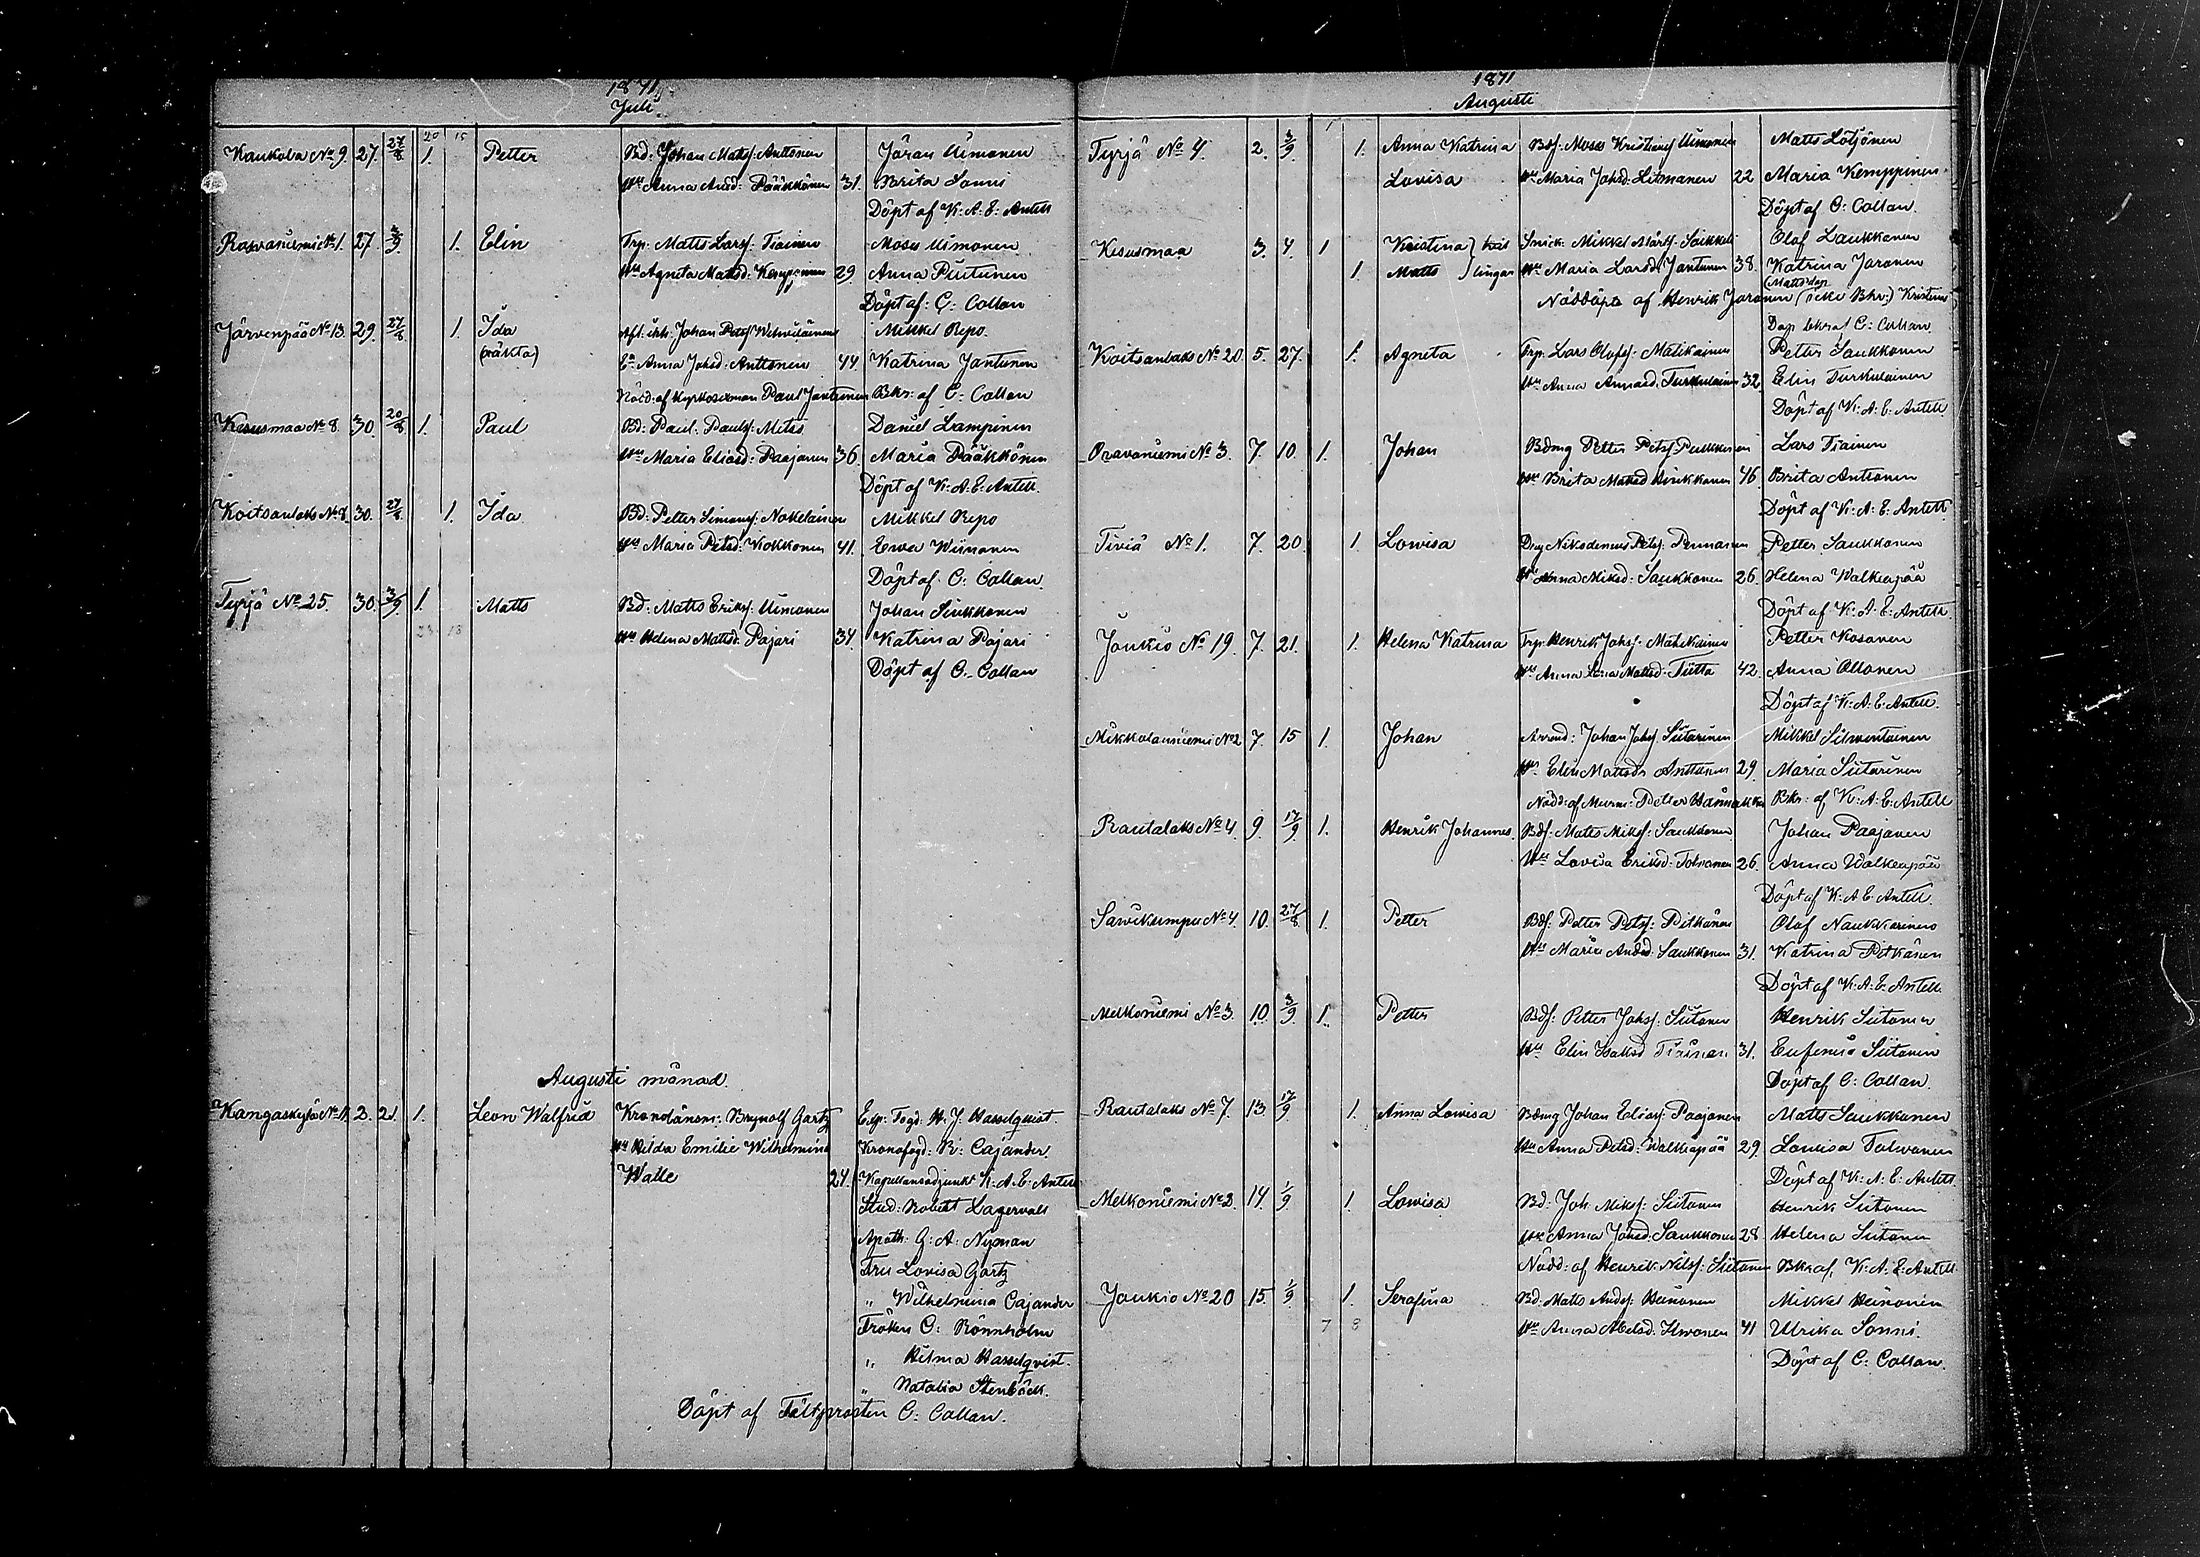 1871
Juli
20 15
Kaukola No 9. 27. 27/8 1. Petter Bd: Johan Matts: Anttonen Jöran Uimonen
Hu Anna Andd: Pääkkönen 31. Brita Sonni
Döpt af K: A: E: Antell
Rasvaniemi No 1. 27. 3/9 1. Elin Trp: Matts Larsf: Tiainen Moses Uimonen
Hu Agneta Mattsd: Kemppinen 29. Anna Puitunen
Döpt af: C: Collan
Järvenpää No 13. 29. 27/8 1. Ida Johan Petsf Mikkel Repo
(oäkta) En Anna Johsd: Anttonen 44. Katrina Jantunen
Nödd: af Kyrkoserman Paul Jantunen Bkr: af C: Collan
Kesusmaa No 8. 30. 20/8 1. Paul Bd: Paul: Paulsf: Mitss Daniel Lampinen
Hu Maria Eliasd: Paajanen 36 Maria Pääkkönen
Döpt af K: A: E: Antell.
Koitsanlaks No 8. 30. 27/8 1. Ida Bd: Petter Simonsf: Nokelainen Mikkel Repo
Hu Maria Petsd: Kokkonen 41. Ewa Wiinanen
Döpt af C: Collan
Tyrjä No 25. 30. 3/9 1. Matts Bd: Matts Eriksf: Uimonen Johan Sinkkonen
23 18 Hu Helena Mattsd: Pajari 34. Katrina Pajari
Döpt af C. Collan
Augusti månad.
Kangaskylä No 1. 2. 21. 1. Leon Walfrid Kronolänsm: Brynolf Gartz Exp: Fogd: H. J. Hasselqvist.
Hu Hilda Emilie Wilhelmina Kronofogd: R: Cajander
Walle 24. Kapellansadjunkt K: A: E: Antell
Stud: Robert Lagervall
Apoth: G: A: Nyman
Fru Lovisa Gartz
" Wilhelmina Cajander
Fröken C: Rönnholm
" Hilma Hasselqvist.
" Natalia Stenbäck.
Döpt af Fältprosten C: Collan.
1871
Augusti
Tyrjä No 4. 2. 3/9. 1. Anna Katrina Bdsf: Moses Kristiansf Uimonen Matts Lötjönen
Lovisa Hu Maria Johsd: Litmanen 22 Maria Kemppinen
Döpt af C: Collan.
Kesusmaa 3. 4. 1 Kristina } tvil Snick: Mikkel Mårtsf: Saikkeli Olof Laukkanen
1. Matts } lingar Hu Maria Larsd: Jantunen 38. Katrina Jaronen
(Matts döp
Nöddöpta af Henrik Jaronen (icke Bkr:) Kristinas
Dop bkraf C: Collan.
Koitsanlaks No 20. 5. 27. 1. Agneta Trp: Lars Olofsf: Matikainen Petter Saukkonen
Hu Anna Annasd. Turkulainen 32. Elin Turkulainen
Döpt af K: A: E: Antell.
Oravaniemi No 3. 7. 10. 1. Johan Bdmg Petter Petsf Pulkkinen Lars Tiainen
Hu Brita Matsd Hirikkanen 46. Brita Antionen
Döpt af K: A: E: Antell
Tiviä No 1. 7. 20. 1. Lowisa Dräg Nikodemus Petsf: Pennanen Petter Saukkonen
Hu Anna Miksd: Saukkonen 26. Helena Walkeapää
Döpt af K: A: E: Antell.
Joukio No 19. 7. 21. 1. Helena Katrina Trp: Henrik Johsf: Matikainen Petter Kosonen
Hu Anna Lena Mattsd: Tiitta 42. Anna Ollonen
Döpt af K: A: E: Antell.
Mikkolanniemi No 2 7. 15 1. Johan Arrend: Johan Johsf Siitarinen Mikkel Silwentoinen
Hu Elin Mattsdr Anttonen 29. Maria Siitarinen
Nödd: af Murm: Petter Bkr: af K: A: E: Antell
Rautalaks No 4. 9. 17/9 1. Henrik Johannes. Bdsf: Matts Miksf: Saukkonen Johan Paajanen
Hu Lovisa Eriksd: Tolvanen 26. Anna Walkeapää
Döpt af K: A: E: Antell.
Savikumpu No 4. 10. 27/8. 1. Petter Bdsf: Petter Petsf: Pitkänen Olof Naukkarinen
Hu Maria Andsd. Saukkonen 31. Katrina Pitkänen
Döpt af K: A: E: Antell.
Melkoniemi No 3. 10. 3/9. 1. Petter Bdsf: Petter Johsf: Siitonen Henrik Siitonen
Hu Elin Isaksd Tirinen 31. Eufemia Siitonen
Döpt af C: Collan.
Rautalaks No 7. 13. 17/9 1. Anna Lowisa Bdmg Johan Eliasf: Paajanen Matts Saukkonen
Hu Anna Petsd: Walkeapää 29. Lowisa Tolwanen
Döpt af K: A: E: Antell
Melkoniemi No 2. 14. 1/9. 1. Lowisa Bd: Joh Miksf: Siitonen Henrik Siitonen
Hu Anna Johsd: Saukkonen 28. Helena Siitonen
Nödd: af Henrik Nilsf: Siitonen Bkr af, K: A: E: Antell
Joukio No 20 15. 1/9. 1. Serafina Bd: Matts Andsf: Heinonen Mikkel Heinonen
7 8 Hu Anna Abelsd. Ilwonen 41 Ulrika Sonni.
Döpt af C: Collan.